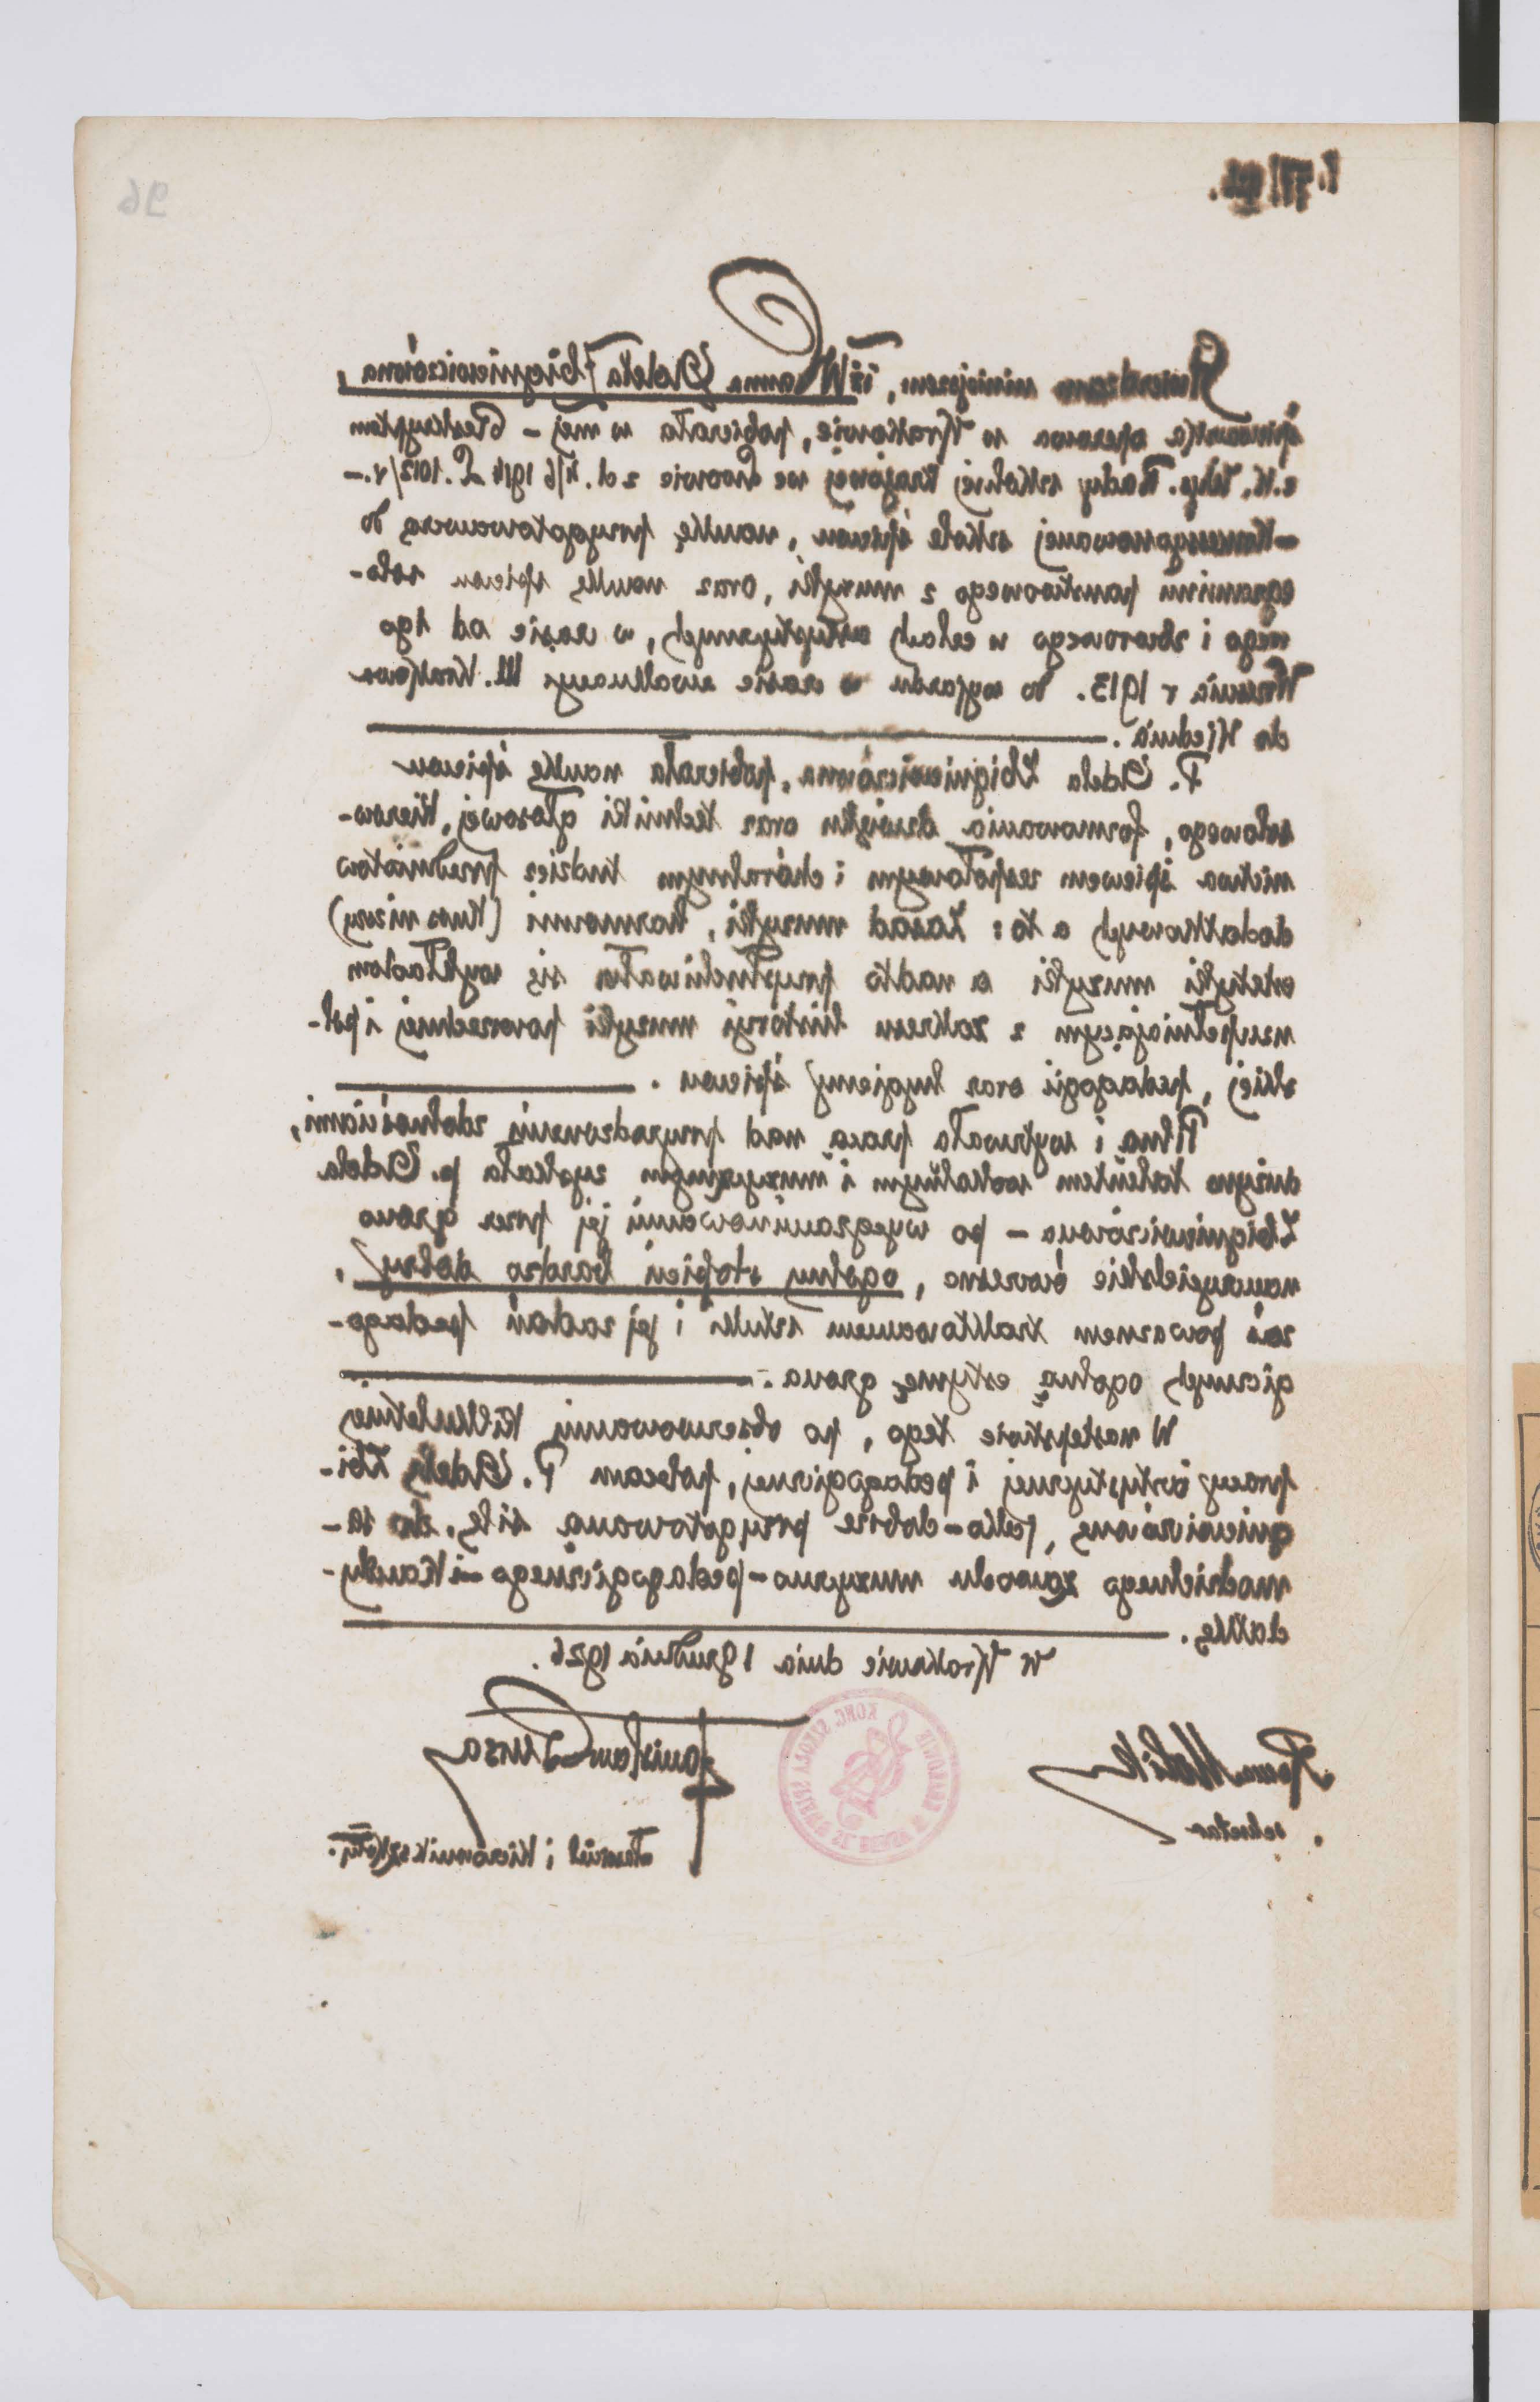 L. 77/926.
96
Stwierdzam niniejszem, iż Wanna Adela Zbigniewiczówna,
śpiewaczka operowa w Krakowie, pobierała w mej – Reskryptem
c. k. Wys. Rady szkolnej krajowej we Lwowie z d. 4/6 1914 L. 1012/V. –
– Koncesyonowanej szkole śpiewu, naukę przygotowawczą do
egzaminu państwowego z muzyki, oraz naukę śpiewu solo-
wego i zbiorowego w celach artystycznych, w czasie od 1go
Września r 1913. do wyjazdu w czasie ewakuacyi M. Krakowa
do Wiednia.
P. Adela Zbigniewiczówna, pobierała naukę śpiewu
solowego, formowania dźwięku oraz techniki głosowej, kierow-
nictwa śpiewem zespołowym i chóralnym tudzież przedmiotów
dodatkowych a to: Zasad muzyki, harmonii (kurs niższy)
estetyki muzyki a nadto przysłuchiwała się wykładom
uzupełniającym z zakresu historyi muzyki powszechnej i pol-
skiej, pedagogii oraz hygieny śpiewu.
Pilną i wytrwałą pracą nad przyrodzonymi zdolnościami,
dużym talentem wokalnym i muzycznym zyskała p. Adela
Zbigniewiczówna – po wyegzaminowaniu jej przez grono
nauczycielskie ówczesne, ogólny stopień bardzo dobry,
zaś poważnem traktowaniem sztuki i jej zadań pedago-
gicznych ogólną estymę grona. –
W następstwie tego, po obserwowaniu kilkuletniej
pracy artystycznej i pedagogicznej, polecam P. Adelę Zbi-
gniewiczównę, jako – dobrze przygotowaną siłę, do sa-
modzielnego zawodu muzyczno – pedagogicznego – i kandy-
datkę.
W Krakowie dnia 1 grudnia 1926.
KONC. SZKOŁA ŚPIEWU
sekretarz
Stanisław Bursa
dyrektor i kierownik szkoły.